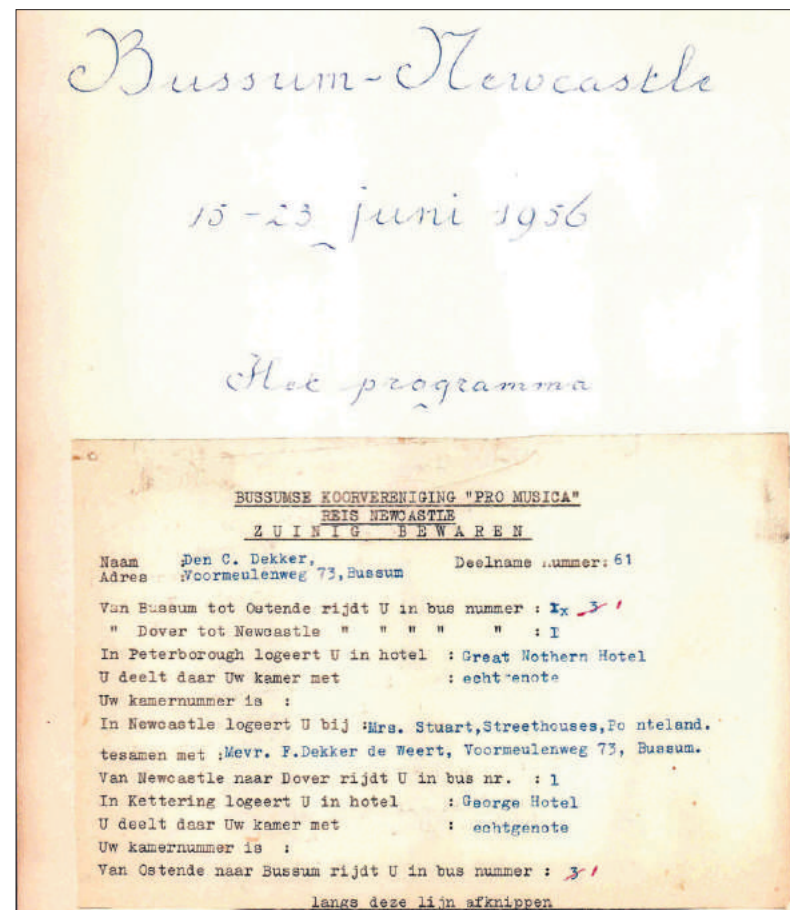 Bussum-Newcastle
15-23 juni 1956
Het programma
BUSSUMSE KOORVERENIGING "PRO MUSICA"
REIS NEWCASTLE
ZUINIG BEWAREN
Naam :Den C. Dekker, Deelname nummer: 61
Adres :Voormeulenweg 73, Bussum
Van Bussum tot Ostende rijdt U in bus nummer : 1
" Dover tot Newcastle " " " " " : I
In Peterborough logeert U in hotel : Great Nothern Hotel
U deelt daar Uw kamer met : echtgenote
Uw kamernummer is :
In Newcastle logeert U bij :Mrs. Stuart,Streethouses,Po nteland.
tesamen met :Mevr. F.Dekker de Weert, Voormeulenweg 73, Bussum.
Van Newcastle naar Dover rijdt U in bus nr. : 1
In Kettering logeert U in hotel : George Hotel
U deelt daar Uw kamer met : echtgenote
Uw kamernummer is :
Van Ostende naar Bussum rijdt U in bus nummer : 3 1
langs deze lijn afknippen